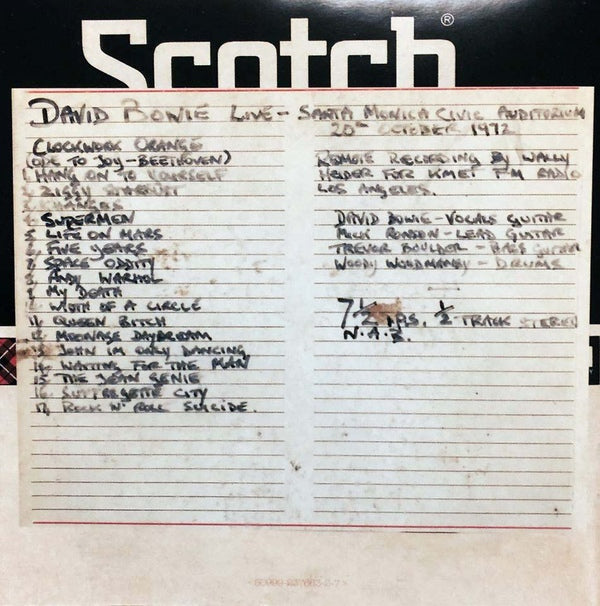 Scotch®
DAVID BOWIE LIVE – SANTA MONICA CIVIC AUDITORIUM
20th OCTOBER 1972
CLOCKWORK ORANGE
(ODE TO JOY – BEETHOVEN)
1. HANG ON TO YOURSELF
2. ZIGGY STARDUST
3. CHANGES
4. SUPERMEN
5. LIFE ON MARS
6. FIVE YEARS
7. SPACE ODDITY
8. ANDY WARHOL
9. MY DEATH
10. WIDTH OF A CIRCLE
11. QUEEN BITCH
12. MOONAGE DAYDREAM
13. JOHN IM ONLY DANCING
14. WAITING FOR THE MAN
15. THE JEAN GENIE
16. SUFFRAGETTE CITY
17. ROCK N' ROLL SUICIDE.
REMOTE RECORDING BY WALLY
HEIDER FOR KMET FM RADIO
LOS ANGELES.
DAVID BOWIE – VOCALS GUITAR
MICK RONSON – LEAD GUITAR
TREVOR BOULDER – BASS GUITAR
WOODY WOODMANSEY – DRUMS
7½ IPS. ½-TRACK STEREO
N.A.B.